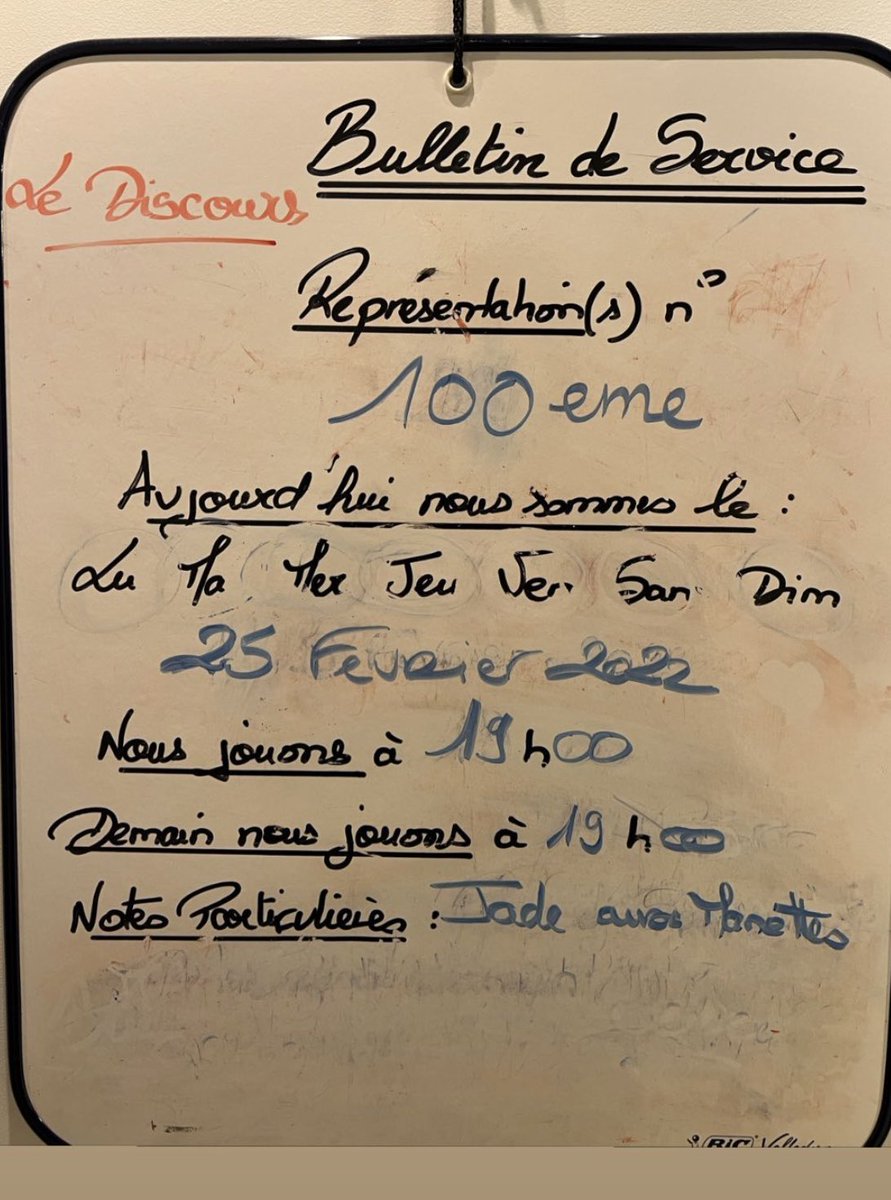 Bulletin de Service
Le Discours
Représentation(s) n°
100 eme
Aujourd'hui nous sommes le :
Lu Ma Mer Jeu Ver. Sam Dim
25 Février 2022
Nous jouons à 19 h 00
Demain nous jouons à 19 h 00
Notes Particulières : Jade aux Manettes
BIC Velleda